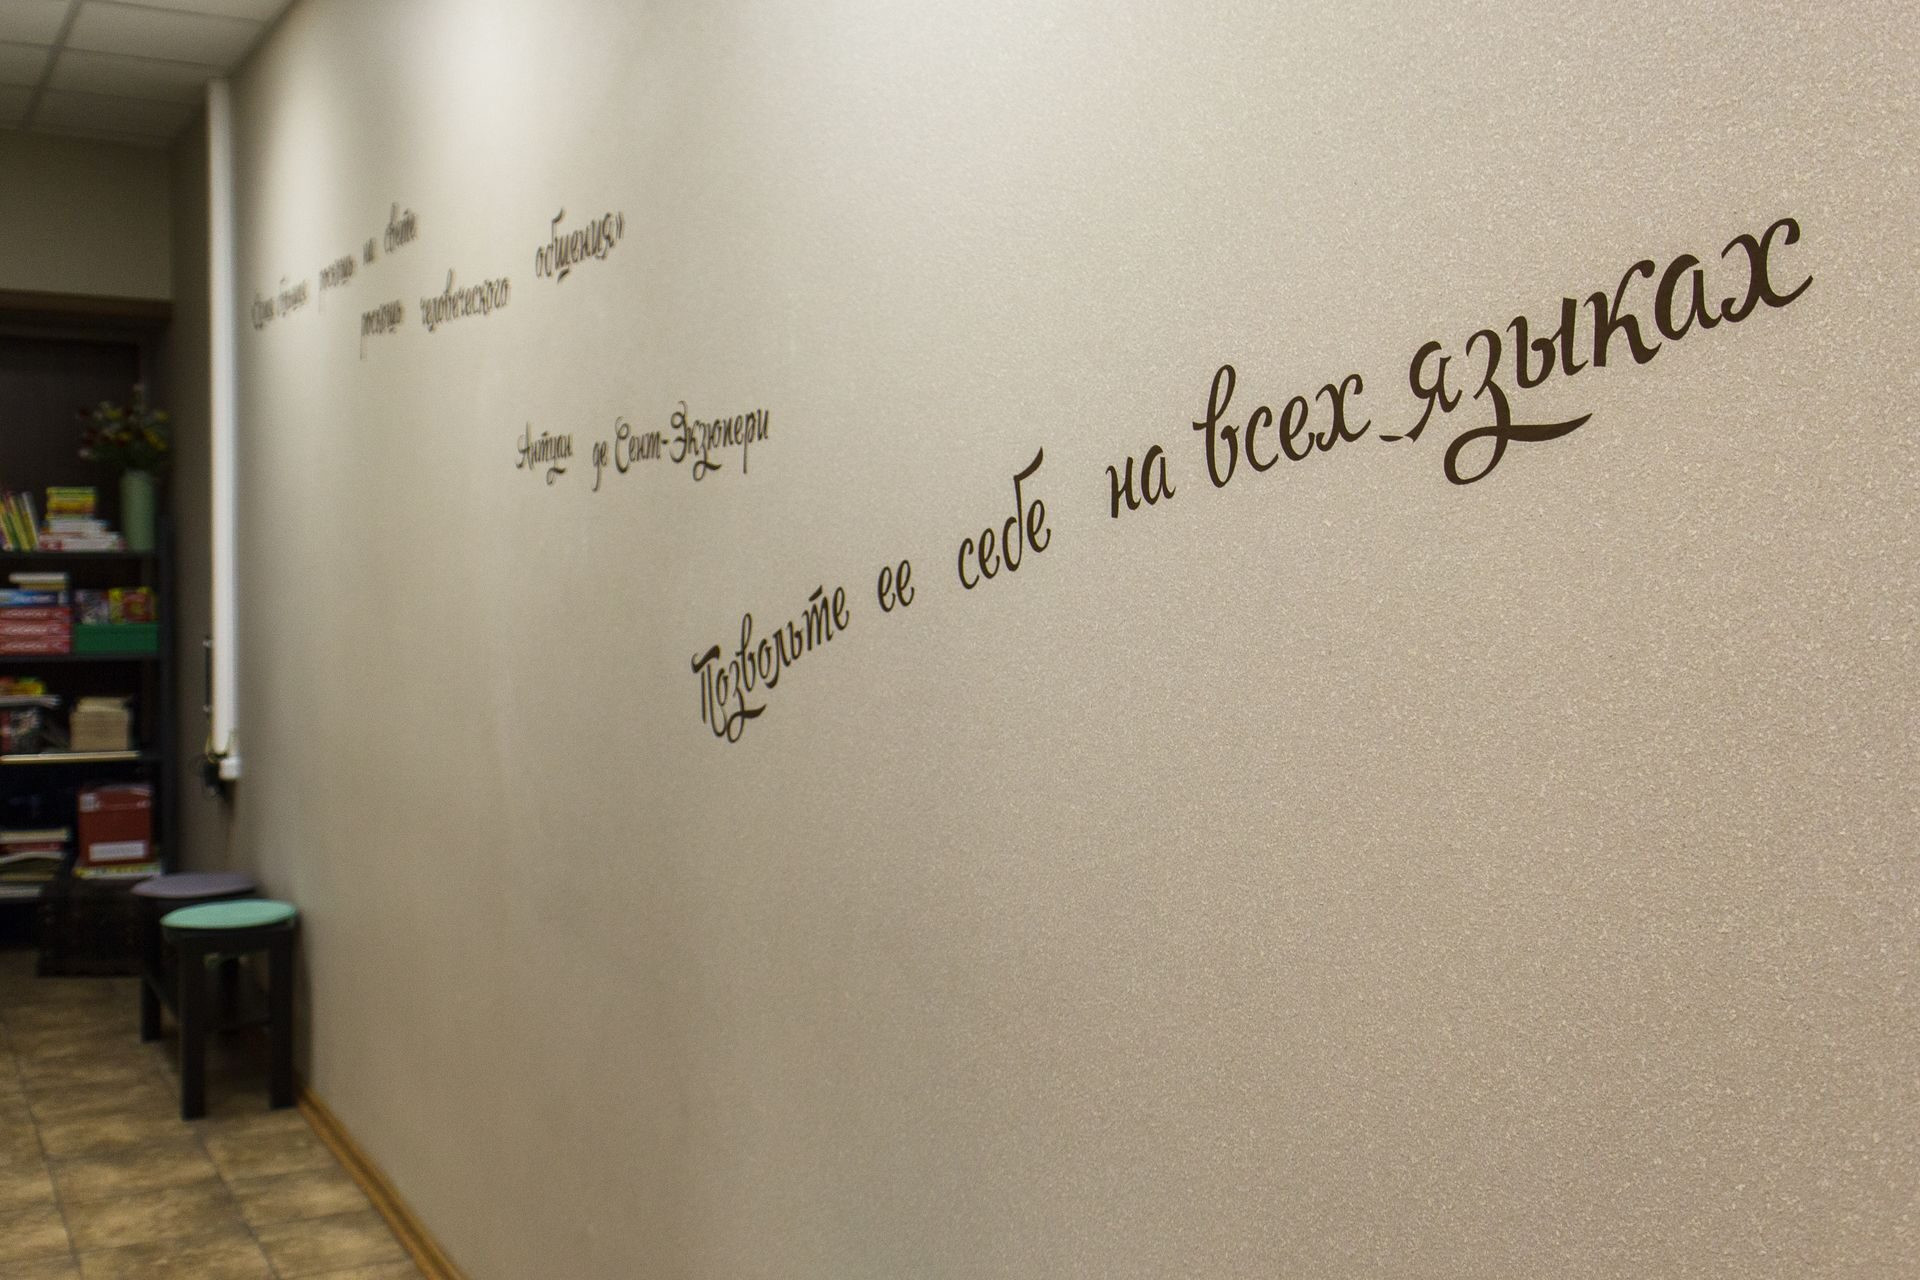 «Самая большая роскошь на свете
роскошь человеческого общения»
Антуан де Сент-Экзюпери
Позвольте ее себе на всех языках